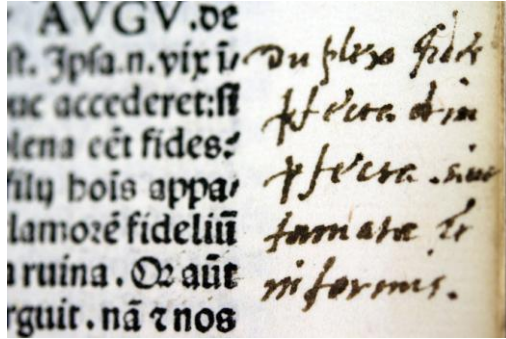 AVGV.de
st. Ipsa.n.vix ī
uc accederet:si
lena eēt fides:
filij hoīs appa
lamorē fideliū
ruina. Qꝛ aūt
rguit.nā ⁊ nos
Duplex fides
ꝑfecta et im
ꝑfecta. siue
formata et
informis.